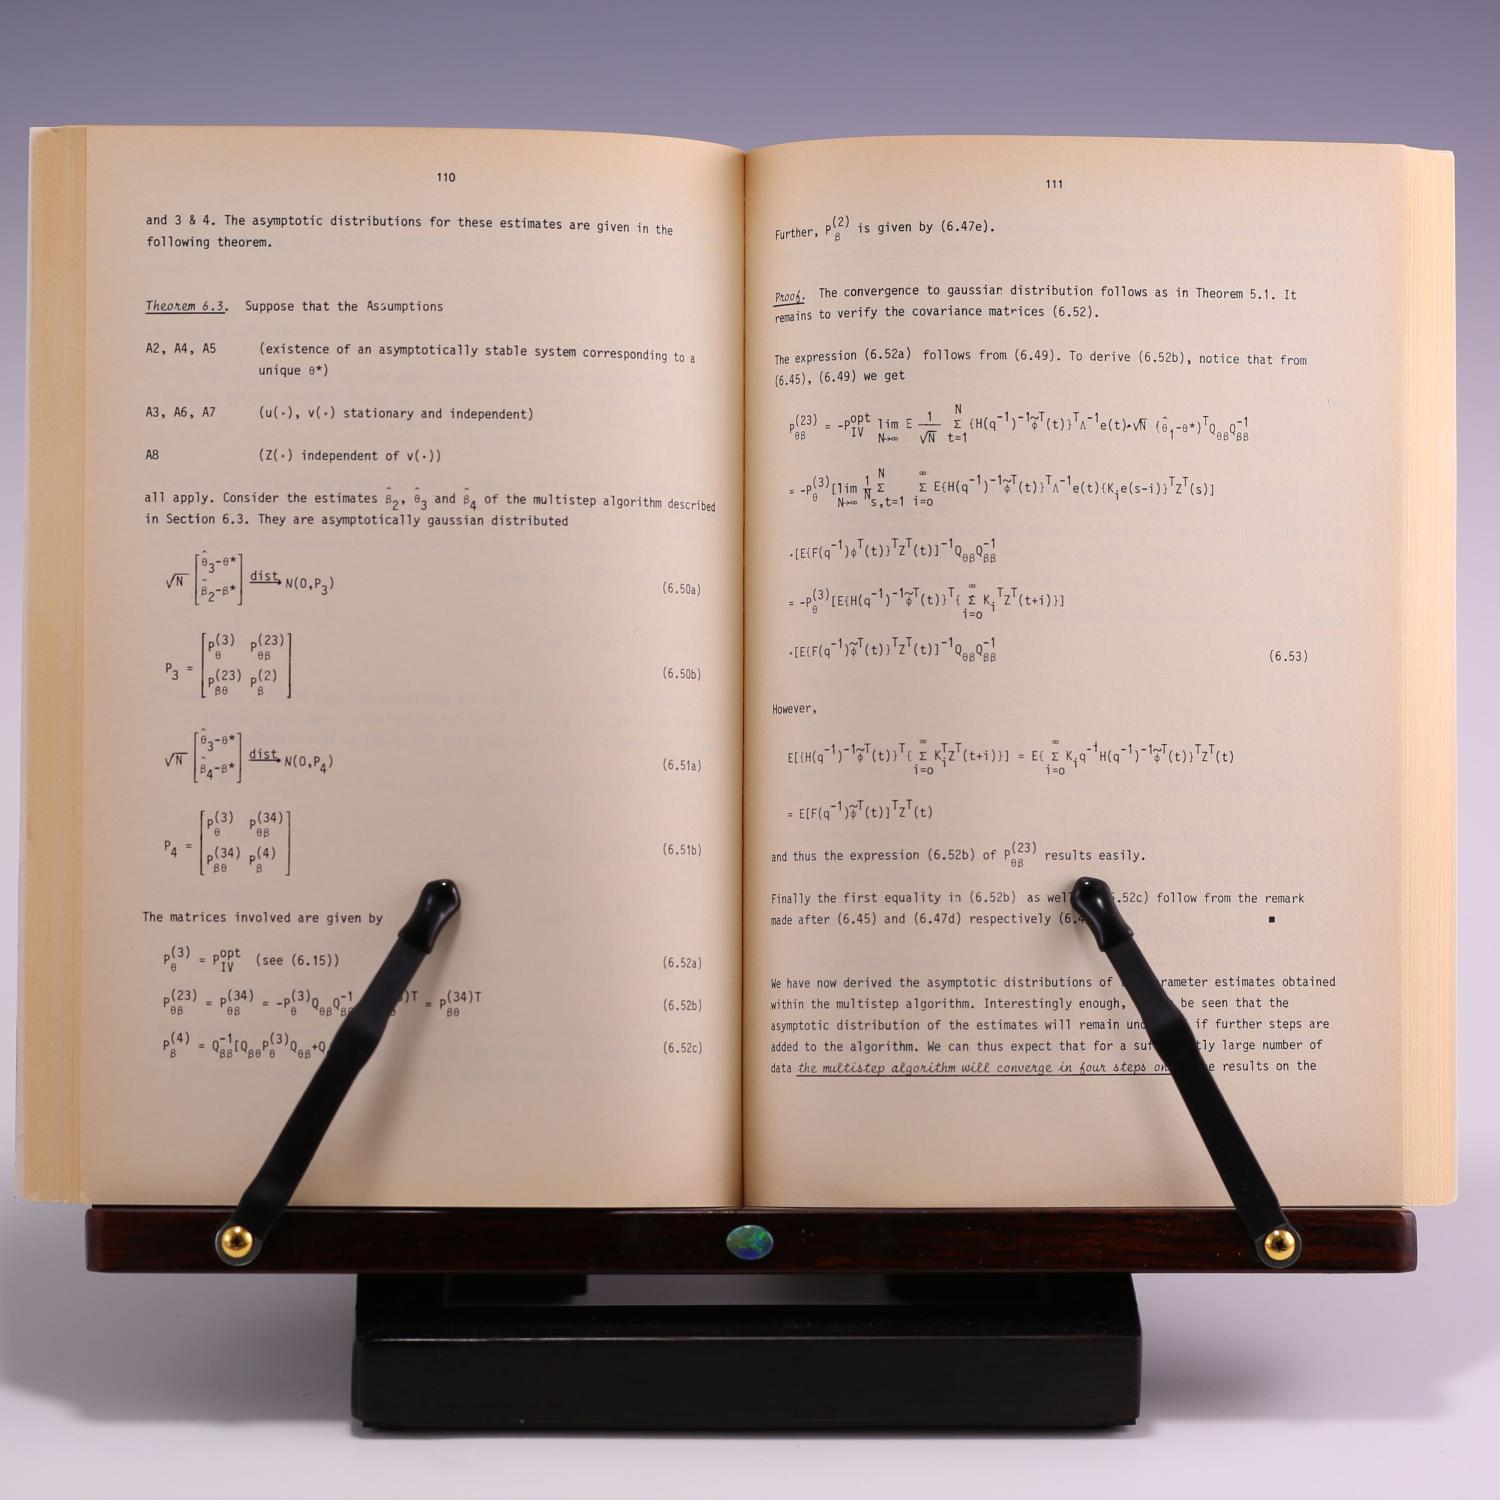 110
and 3 & 4. The asymptotic distributions for these estimates are given in the
following theorem.
Theorem 6.3. Suppose that the Assumptions
A2, A4, A5 (existence of an asymptotically stable system corresponding to a
unique θ*)
A3, A6, A7 (u(·), v(·) stationary and independent)
A8 (Z(·) independent of v(·))
all apply. Consider the estimates β̂₂, θ̂₃ and β̂₄ of the multistep algorithm described
in Section 6.3. They are asymptotically gaussian distributed
√N [θ̂₃-θ* ; β̂₂-β*] dist→ N(0,P₃) (6.50a)
P₃ = [P_θ^(3) P_θβ^(23) ; P_βθ^(23) P_β^(2)] (6.50b)
√N [θ̂₃-θ* ; β̂₄-β*] dist→ N(0,P₄) (6.51a)
P₄ = [P_θ^(3) P_θβ^(34) ; P_βθ^(34) P_β^(4)] (6.51b)
The matrices involved are given by
P_θ^(3) = P_IV^opt (see (6.15)) (6.52a)
P_θβ^(23) = P_θβ^(34) = -P_θ^(3) Q_θβ Q_ββ^-1 )T = P_βθ^(34)T (6.52b)
P_β^(4) = Q_ββ^-1 [Q_βθ P_θ^(3) Q_θβ +Q (6.52c)
111
Further, P_β^(2) is given by (6.47e).
Proof. The convergence to gaussian distribution follows as in Theorem 5.1. It
remains to verify the covariance matrices (6.52).
The expression (6.52a) follows from (6.49). To derive (6.52b), notice that from
(6.45), (6.49) we get
P_θβ^(23) = -P_IV^opt lim_{N→∞} E 1/√N Σ_{t=1}^N {H(q^-1)^-1 φ̃^T(t)}^T Λ^-1 e(t)·√N (θ̂₁-θ*)^T Q_θβ Q_ββ^-1
= -P_θ^(3) [lim_{N→∞} 1/N Σ_{s,t=1}^N Σ_{i=o}^∞ E{H(q^-1)^-1 φ̃^T(t)}^T Λ^-1 e(t){K_i e(s-i)}^T Z^T(s)]
·[E{F(q^-1)φ^T(t)}^T Z^T(t)]^-1 Q_θβ Q_ββ^-1
= -P_θ^(3) [E{H(q^-1)^-1 φ̃^T(t)}^T { Σ_{i=o}^∞ K_i^T Z^T(t+i)}]
·[E{F(q^-1)φ̃^T(t)}^T Z^T(t)]^-1 Q_θβ Q_ββ^-1 (6.53)
However,
E[{H(q^-1)^-1 φ̃^T(t)}^T { Σ_{i=o}^∞ K_i^T Z^T(t+i)}] = E{ Σ_{i=o}^∞ K_i q^-i H(q^-1)^-1 φ̃^T(t)}^T Z^T(t)
= E[F(q^-1)φ̃^T(t)]^T Z^T(t)
and thus the expression (6.52b) of P_θβ^(23) results easily.
Finally the first equality in (6.52b) as well 5.52c) follow from the remark
made after (6.45) and (6.47d) respectively (6.4 ■
We have now derived the asymptotic distributions of rameter estimates obtained
within the multistep algorithm. Interestingly enough, be seen that the
asymptotic distribution of the estimates will remain un if further steps are
added to the algorithm. We can thus expect that for a suf tly large number of
data the multistep algorithm will converge in four steps on e results on the